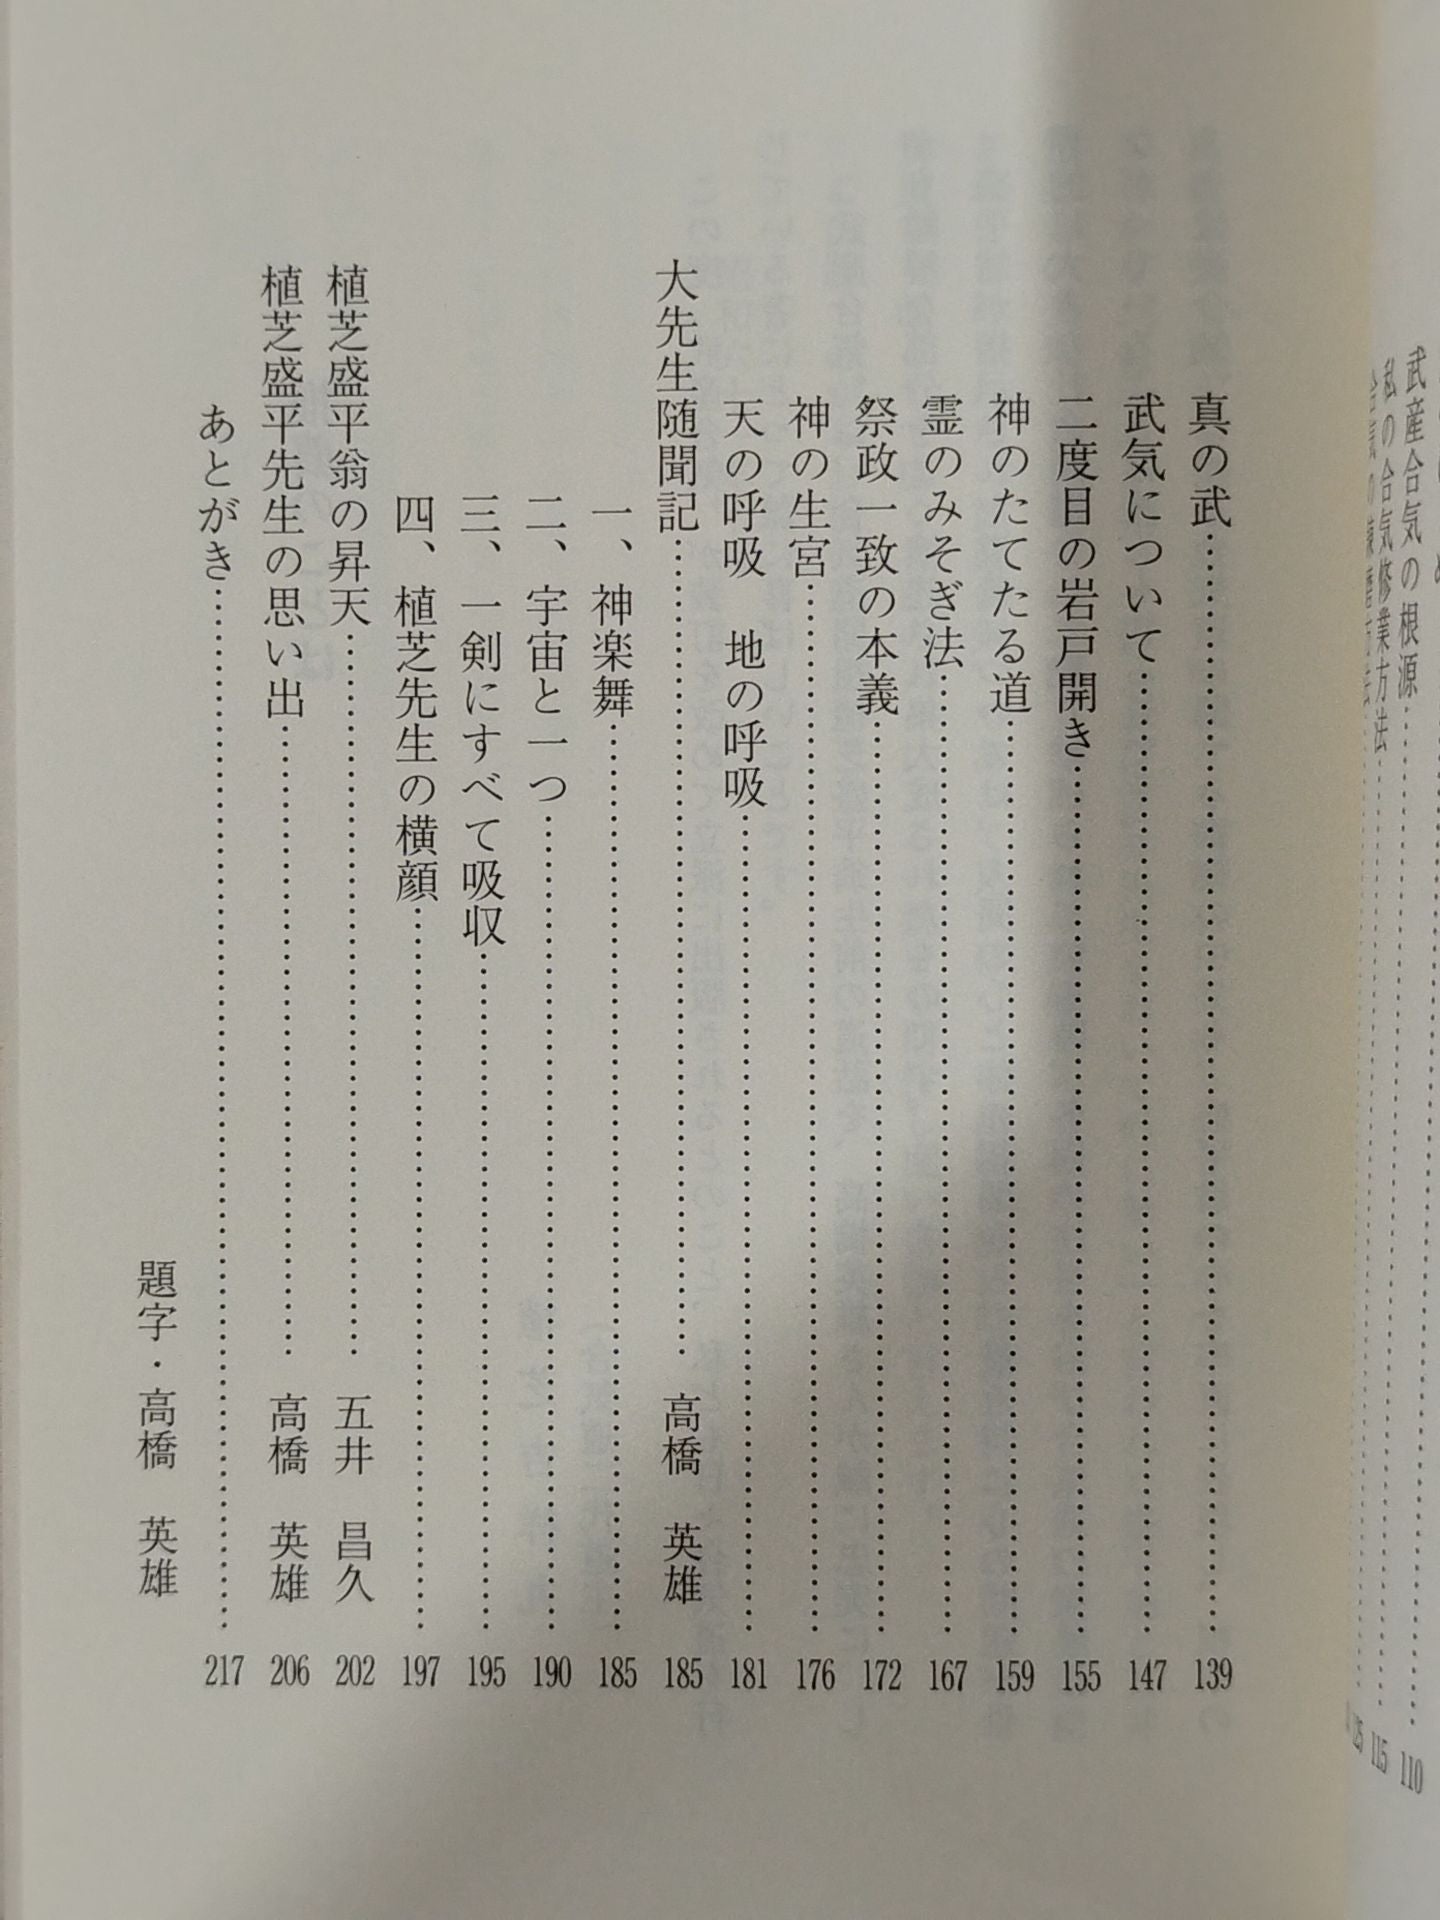 武産合気の根源………110
私の合気修業方法………115
真の武………139
武気について………147
二度目の岩戸開き………155
神のたてたる道………159
霊のみそぎ法………167
祭政一致の本義………172
神の生宮………176
天の呼吸　地の呼吸………181
大先生随聞記………高橋　英雄　185
一、神楽舞………185
二、宇宙と一つ………190
三、一剣にすべて吸収………195
四、植芝先生の横顔………197
植芝盛平翁の昇天………五井　昌久　202
植芝盛平先生の思い出………高橋　英雄　206
あとがき………217
題字・高橋　英雄